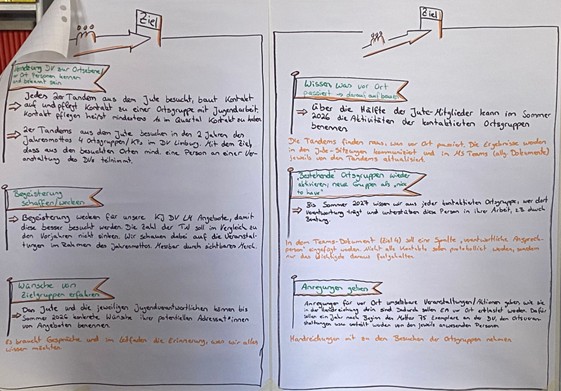 Ziel
Vernetzung DV zur Ortsebene
vor Ort Personen kennen
und bekannt sein
Jedes 2er Tandem aus dem Jute besucht, baut Kontakt
auf und pflegt Kontakt zu einer Ortsgruppe mit Jugendarbeit.
Kontakt pflegen heißt mindestens 1x im Quartal Kontakt zu haben
2er Tandems aus dem Jute besuchen in den 2 Jahren des
Jahresmottos 4 Ortsgruppen/KTs im DV Limburg. Mit dem Ziel
dass aus den besuchten Orten mind. eine Person an einer Ver-
anstaltung des DVs teilnimmt.
Begeisterung
schaffen/wecken
Begeisterung wecken für unsere KJ DV LM Angebote, damit
diese besser besucht werden. Die Zahl der TN soll im Vergleich zu
den Vorjahren nicht sinken. Wir schauen dabei auf die Veranstal-
tungen im Rahmen des Jahresmottos. Messbar durch sichtbares Merch.
Wünsche von
Zielgruppen erfahren
Das Jute und die jeweiligen Jugendverantwortlichen können bis
Sommer 2026 konkrete Wünsche ihrer potentiellen Adressat*innen
von Angeboten benennen.
Es braucht Gespräche und im Leitfaden die Erinnerung, was wir alles
wissen möchten
Ziel
Wissen, was vor Ort
passiert → darauf aufbauen
Über die Hälfte des Jute-Mitglieder kann im Sommer
2026 die Aktivitäten der kontaktierten Ortsgruppen
benennen
Die Tandems finden raus, was vor Ort passiert. Die Ergebnisse werden
in den Jute-Sitzungen kommuniziert und im MS Teams (ally Dokumente)
jeweils von den Tandems aktualisiert.
Bestehende Ortsgruppen wieder
aktivieren, neue Gruppen als "nice
to have"
Bis Sommer 2027 wissen wir aus jeder kontaktierten Ortsgruppe, wer dort
Verantwortung trägt und unterstützen diese Person in ihrer Arbeit, z.B. durch
Beratung.
In dem Teams-Dokument (Ziel 4) soll eine Spalte "verantwortliche Ansprech-
person" eingefügt werden. Nicht alle Kontakte sollen protokolliert werden, sondern
nur das Wichtigste daraus festgehalten
Anregungen geben
Anregungen für vor Ort umsetzbare Veranstaltungen/Aktionen geben, wie sie
in der Handreichung drin sind. Dadurch sollen EA vor Ort entlastet werden. Da
sollen ein Jahr nach Beginn des Mottos 75 Exemplare an der DV, den Ortsveran-
staltungen usw. verteilt worden von den jeweils anwesenden Personen
Handreichungen mit zu den Besuchen der Ortsgruppen nehmen